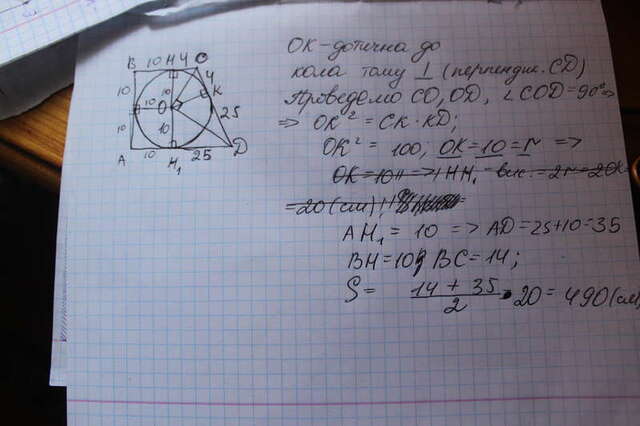 B 10 H 4 C
10 10 4 K
10 O 25
10 10
A 10 H₁ 25 D
OK - дотична до
кола тому ⊥ (перпендик. CD)
Проведемо CO, OD, ∠COD = 90° ⇒
⇒ OK² = CK · KD;
OK² = 100; OK = 10 = r ⇒
OK = 10 ⇒ HH₁ - вис. = 2r = 20
= 20 (см)
AH₁ = 10 ⇒ AD = 25 + 10 = 35
BH = 10; BC = 14;
S = \frac{14 + 35}{2} · 20 = 490 (см)